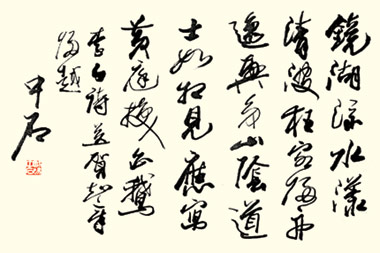 鏡湖流水漾
清波狂客歸舟
逸興多山陰道
士如相見應寫
黃庭換白鵝
李白詩送賀知章
歸越
中石